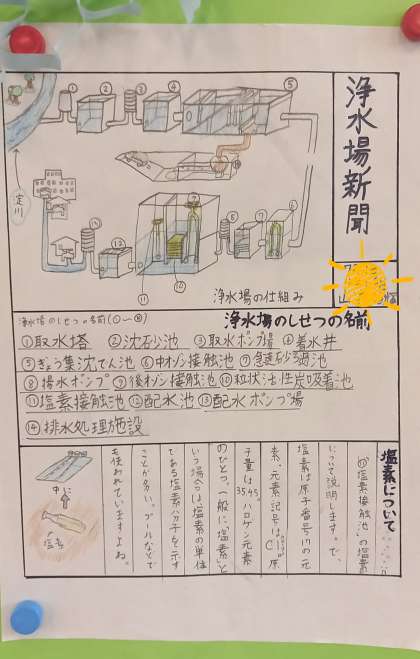 浄水場新聞
① ② ③ ④ ⑤
淀川
⑬ ⑫ ⑧ ⑦ ⑥
⑪ ⑩
浄水場の仕組み
浄水場のしせつの名前(①〜⑭)
浄水場のしせつの名前
①取水塔 ②沈砂池 ③取水ポンプ場 ④着水井
⑤ぎょう集沈でん池 ⑥中オゾン接触池 ⑦急速砂ろ過池
⑧揚水ポンプ ⑨後オゾン接触池 ⑩粒状活性炭吸着池
⑪塩素接触池 ⑫配水池 ⑬配水ポンプ場
⑭排水処理施設
塩素について
⑪「塩素接触池」の塩素
について説明します。で、
塩素は原子番号17の元
素、元素記号はCl。原
子量は35.45。ハロゲン元素
のひとつ。一般に「塩素」と
いう場合は塩素の単体
である塩素分子を示す
ことが多い。プールなどで
も使われていますよね。
中に
塩素